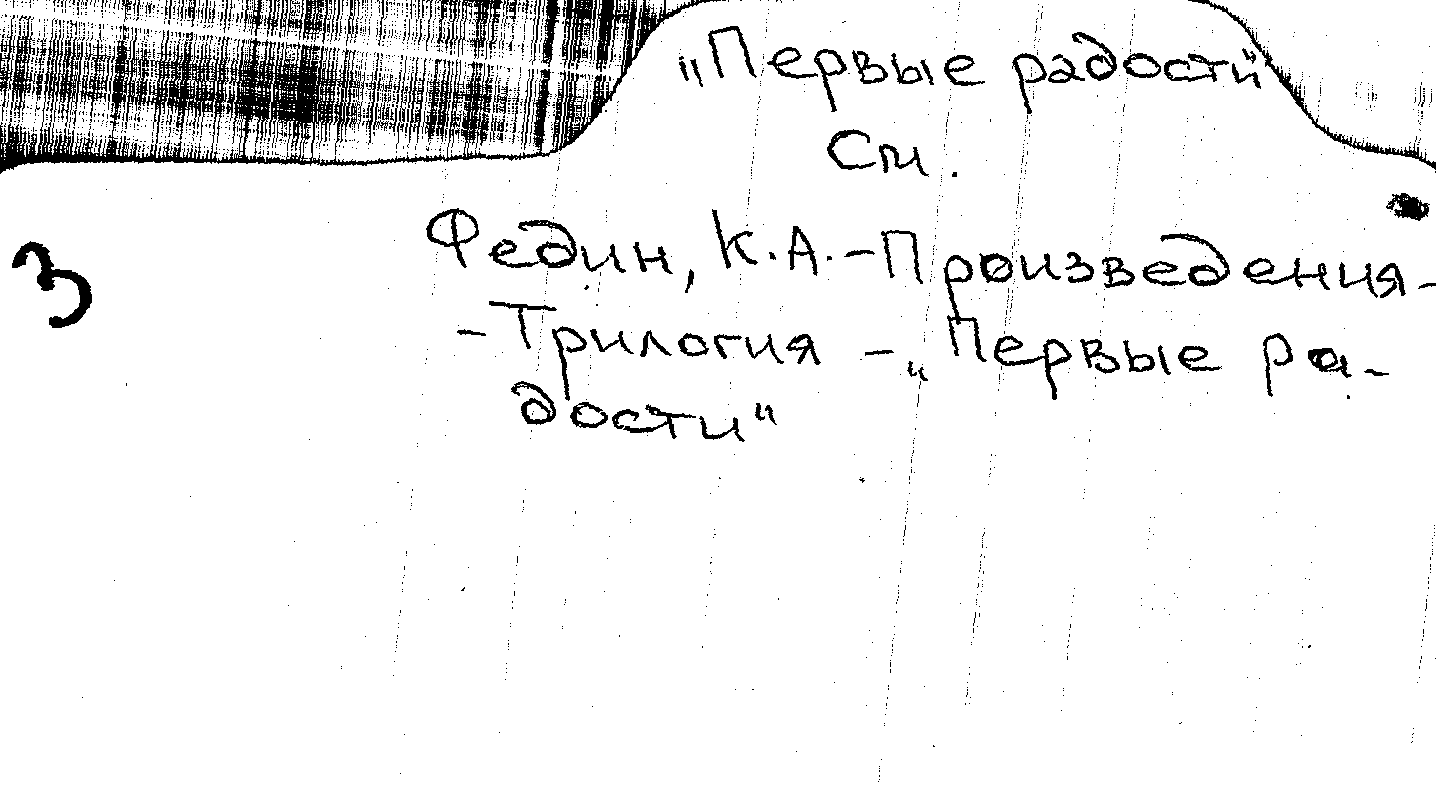 „Первые радости"
См.
3
Федин, К.А.-Произведения-
-Трилогия -„Первые ра-
дости"